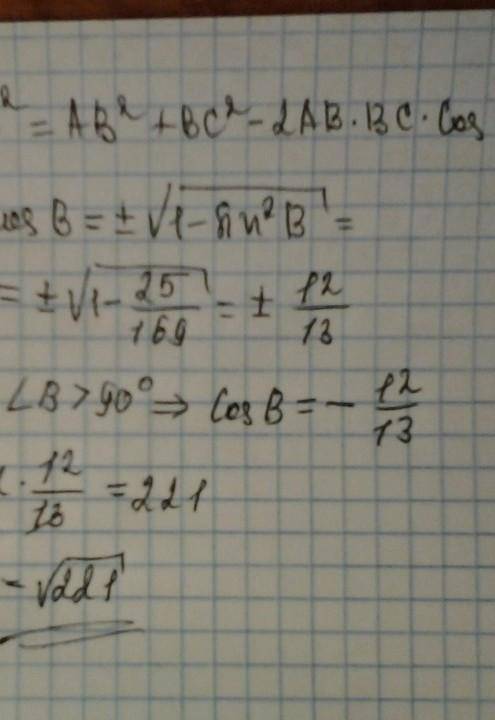 ² = AB² + BC² - 2AB · BC · Cos
cos B = ± √(1 - sin² B) =
= ± √(1 - 25/169) = ± 12/13
∠B > 90° ⇒ Cos B = - 12/13
· 12/13 = 221
- √221